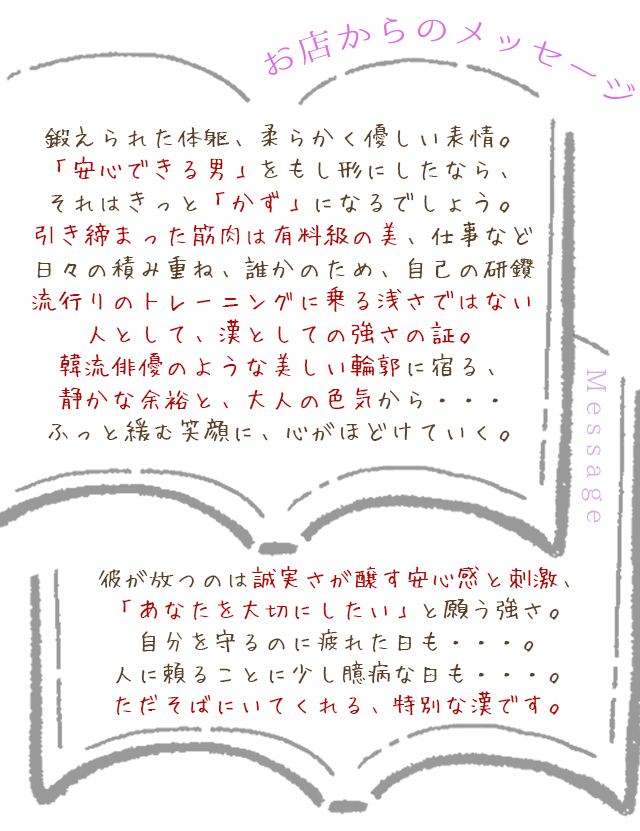 お店からのメッセージ
鍛えられた体躯、柔らかく優しい表情。
「安心できる男」をもし形にしたなら、
それはきっと「かず」になるでしょう。
引き締まった筋肉は有料級の美、仕事など
日々の積み重ね、誰かのため、自己の研鑽
流行りのトレーニングに乗る浅さではない
人として、漢としての強さの証。
韓流俳優のような美しい輪郭に宿る、
静かな余裕と、大人の色気から・・・
ふっと緩む笑顔に、心がほどけていく。
Message
彼が放つのは誠実さが醸す安心感と刺激、
「あなたを大切にしたい」と願う強さ。
自分を守るのに疲れた日も・・・。
人に頼ることに少し臆病な日も・・・。
ただそばにいてくれる、特別な漢です。